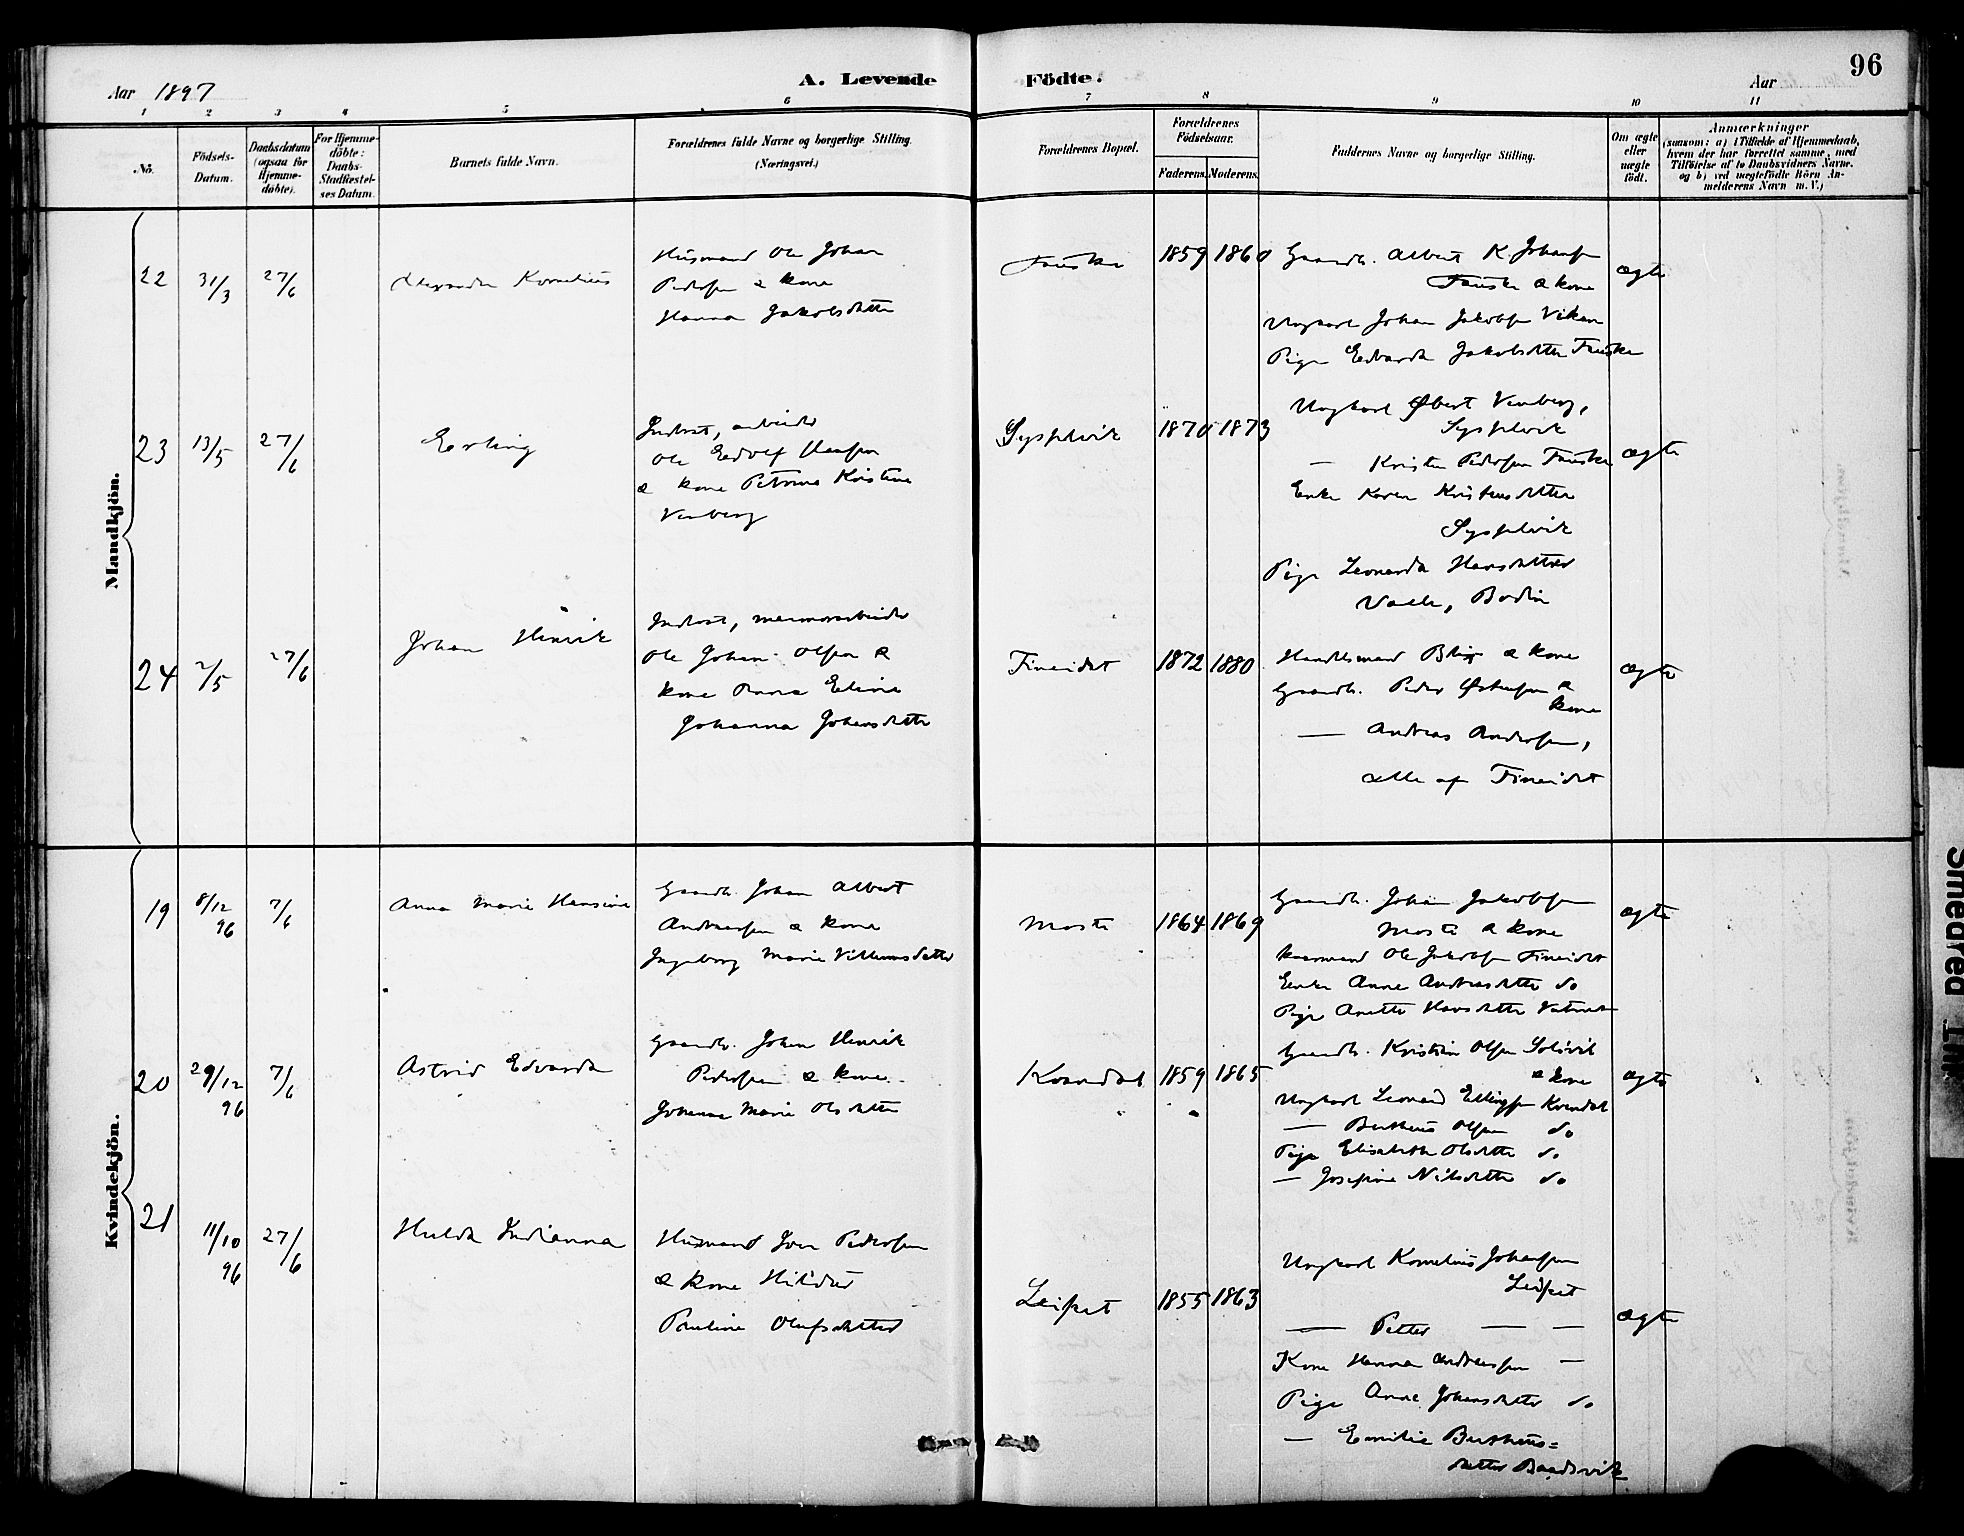 96
Aar 1897
A. Levende Födte.
Aar
1 2 3 4 5 6 7 8 9 10 11
No.
Födsels-Datum.
Daabsdatum (ogsaa för Hjemme-döbte).
For Hjemme-döbte: Daabs-Stadfæstel-ses Datum.
Barnets fulde Navn.
Forældrenes fulde Navne og borgerlige Stilling. (Næringsvei.)
Forældrenes Bopæl.
Forældrenes Födselsaar.
Faderens. Moderens.
Faddernes Navne og borgerlige Stilling.
Om ægte eller uægte født.
Anmærkninger
(saasom: a) i Tilfælde af Hjemmedaab, hvem der har forrettet samme, med Tilföielse af to Daabsvidners Navne. og b) ved uægtefödte Börn An-melderens Navn m. V.)
Mandkjön.
22
31/3
27/6
Alexander Kornelius
Husmand Ole Johan
Pedersen & kone
Hanna Jakobsdatter
Fauske
1859 1860
Gaardb. Albert K. Johansen
Fauske & kone
Ungkarl Johan Jakobsen Viken
Pige Edvarda Jakobsdatter Fauske
ægte
23
13/5
27/6
Erling
Inderst, arbeider
Ole Edolf Hansen
& kone Petrine Kristine
Venberg
Sysselvik
1870 1873
Ungkarl Øbert Venberg,
Sysselvik
— Kristen Pedersen Fauske
Enke Karen Kristensdatter
Sysselvik
Pige Leonarda Hansdatter
Valle, Bodin
ægte
24
2/5
27/6
Johan Henrik
Inderst, marmorarbeider
Ole Johan Olsen &
kone Anna Eline
Johanna Johansdatter
Fineidet
1872 1880
Handelsmand Blix & kone
Gaardb. Peder Østensen &
kone
— Andreas Andersen,
alle af Fineidet
ægte
Kvindekjön.
19
8/12 96
7/6
Anna Marie Hansine
Gaardb. Johan Albert
Andreassen & kone
Ingeborg Marie Villumsdatter
Moste
1864 1869
Gaardb. Johan Jakobsen
Moste & kone
Kaarmand Ole Jakobsen Fineidet
Enke Anne Andreasdatter do
Pige Anette Hansdatter Vatnet
ægte
20
29/12 96
7/6
Astrid Edvarda
Gaardb. Johan Henrik
Pedersen & kone
Johanna Marie Olsdatter
Kvændal
1859 1865
Gaardb. Kristian Olsen Solvik
& kone
Ungkarl Leonard Ellingsen Kvendal
— Bertheus Olsen do
Pige Elisabeth Olsdatter do
— Josefine Nilsdatter do
ægte
21
11/10 96
27/6
Hulda Indianna
Husmand Iver Pedersen
& kone Hildur
Pauline Olufsdatter
Leifset
1855 1863
Ungkarl Kornelius Johansen
Leifset
— Petter — —
Kone Hanna Andreassen —
Pige Anne Johansdatter do
— Emilie Bertheus=
datter Baadsvik
ægte
Smeared Ink